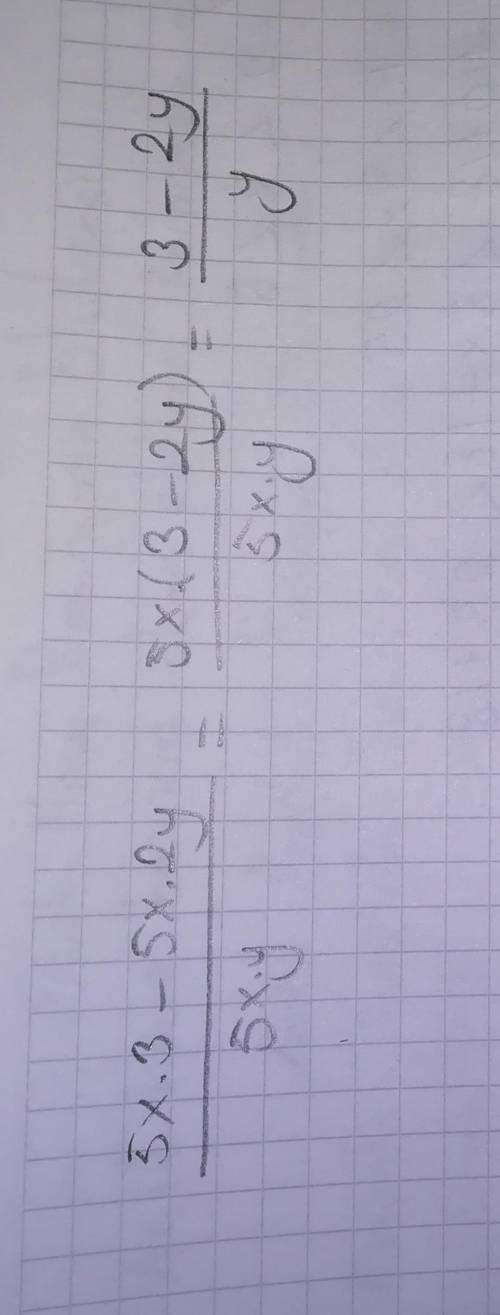 5x·3 - 5x·2y / 5x·y = 5x·(3 - 2y) / 5x·y = 3 - 2y / y